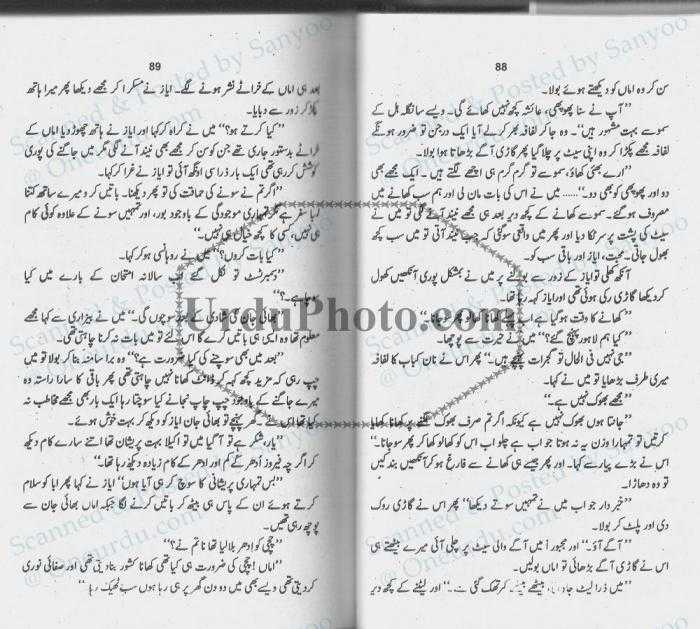 88
سن کر وہ اماں کو دیکھتے ہوئے بولا۔
’’آپ نے سنا پھوپھی، عائشہ کچھ نہیں کھائے گی۔ ویسے سانگلہ ہل کے
سموسے بہت مشہور ہیں‘‘۔ وہ جا کر لفافہ بھر کر لے آیا ایک درجن تو ضرور ہونگے
لفافہ مجھے پکڑا کر وہ اپنی سیٹ پر چلا گیا پھر گاڑی آگے بڑھاتا ہوا بولا۔
’’ارے بھئی کھاؤ، سموسے تو گرم گرم ہی اچھے لگتے ہیں۔ ایک مجھے بھی
دو اور پھوپھی کو بھی دو‘‘...... میں نے اس کی بات مان لی اور ہم سب کھانے میں
مصروف ہو گئے۔ سموسے کھانے کے کچھ دیر بعد ہی مجھے نیند آنے لگی تو میں نے
سیٹ کی پشت پر سر ٹکا دیا اور پھر میں واقعی سو گئی کہ جب نیند آتی تو میں سب کچھ
بھول جاتی۔ محبت، ایاز اور باقی سب کو۔
آنکھ کھلی تو ایاز کے زور سے بولنے پر میں نے بمشکل پوری آنکھیں کھول
کر دیکھا گاڑی رکی ہوئی تھی اور ایاز کہہ رہا تھا۔
’’کھانے کا وقت ہو گیا ہے اب کھانا کھا لو پھر سو جانا۔‘‘
’’کیا ہم لاہور پہنچ گئے؟‘‘ میں نے حیرت سے پوچھا۔
’’جی نہیں فی الحال تو گجرات پہنچے ہیں۔‘‘ پھر اس نے نان کباب کا لفافہ
میری طرف بڑھایا تو میں نے کہا۔
’’مجھے بھوک نہیں ہے‘‘
’’جانتا ہوں بھوک نہیں ہے کیونکہ اگر تم صرف بھوک لگنے پر کھانا کھایا
کرتیں تو تمہارا وزن یہ نہ ہوتا جو اب ہے چلو اب اس کو کھالو کھا کر پھر سو جانا۔‘‘
اس نے بڑے پیار سے کہا۔ اور پھر جیسے ہی کھانے سے فارغ ہو کر آنکھیں بند کیں
تو وہ دھاڑا۔
’’خبردار جو اب میں نے تمہیں سوتے دیکھا‘‘ پھر اس نے گاڑی روک
دی اور پلٹ کر بولا۔
’’آگے آؤ۔‘‘ اور مجبوراً میں آگے والی سیٹ پر چلی آئی میرے بیٹھتے ہی
اس نے گاڑی آگے بڑھائی تو اماں بولیں۔
’’میں ذرا لیٹ جاؤں بیٹا، بیٹھے بیٹھے کمر تھک گئی ہے۔‘‘ اور لیٹنے کے کچھ دیر
89
بعد ہی اماں کے خراٹے نشر ہونے لگے۔ ایاز نے مسکرا کر مجھے دیکھا پھر میرا ہاتھ
پکڑ کر زور سے دبایا۔
’’کیا کرتے ہو؟‘‘ میں نے کراہ کر کہا اور ایاز نے ہاتھ چھوڑ دیا اماں کے
خراٹے بدستور جاری تھے جن کو سن کر مجھے بھی نیند آنے لگی مگر میں جاگنے کی پوری
کوشش کر رہی تھی ایک بار ذرا سی اونگھ آئی تو ایاز نے غرا کر کہا۔
’’اگر تم نے سونے کی حماقت کی تو پھر دیکھنا۔ باتیں کرو میرے ساتھ کتنا
لمبا سفر ہے مگر تمہاری موجودگی کے باوجود بور، اور تمہیں سونے کے علاوہ کوئی کام
ہی نہیں، کسی کا کچھ خیال ہی نہیں۔‘‘
’’کیا بات کروں؟‘‘ میں نے روہانسی ہو کر کہا۔
’’دسمبر ٹسٹ تو نکل گئے اب سالانہ امتحان کے بارے میں کیا
سوچا ہے۔؟‘‘
’’بھائی جان کی شادی کے بعد سوچوں گی۔‘‘ میں نے بیزاری سے کہا مجھے
معلوم تھا وہ ایسی ہی باتیں کرے گا اس لئے تو میں بات نہ کرنا چاہتی تھی۔
’’بعد میں بھی سوچنے کی کیا ضرورت ہے؟‘‘ وہ برا سا منہ بنا کر بولا تو میں
چپ رہی کہ مزید کچھ کہہ کے ڈانٹ کھانا نہیں چاہتی تھی پھر باقی کا سارا راستہ وہ
میرے جاگنے کے باوجود چپ چاپ نجانے کیا سوچتا رہا ایک بار بھی مجھے مخاطب نہ
کیا تھا اس نے۔ گھر پہنچے تو بھائی جان ایاز کو دیکھ کر بہت خوش ہوئے۔
’’یار، شکر ہے تو آ گیا میں تو اکیلا بہت پریشان تھا اتنے سارے کام دیکھ
کر اگرچہ فیروز اُدھر کے کم اور ادھر کے کام زیادہ دیکھ رہا تھا۔‘‘
’’بس تمہاری پریشانی کا سوچ کر ہی آیا ہوں‘‘ ایاز نے کہا پھر ابا کو سلام
کرتے ہوئے ان کے پاس ہی بیٹھ کر باتیں کرنے لگا جبکہ اماں بھائی جان سے
پوچھ رہی تھیں۔
’’چچی کو ادھر بلا لیا تھا نا تم نے؟‘‘
’’اماں! چچی کی ضرورت ہی کیا تھی کھانا کشور بنا دیتی تھی اور صفائی نوری
کر دیتی تھی ویسے بھی میں دو دن گھر پر ہی رہا ہوں سب ٹھیک رہا‘‘
UrduPhoto.com
Scanned & Posted by Sanyoo
@ Oneurdu.com